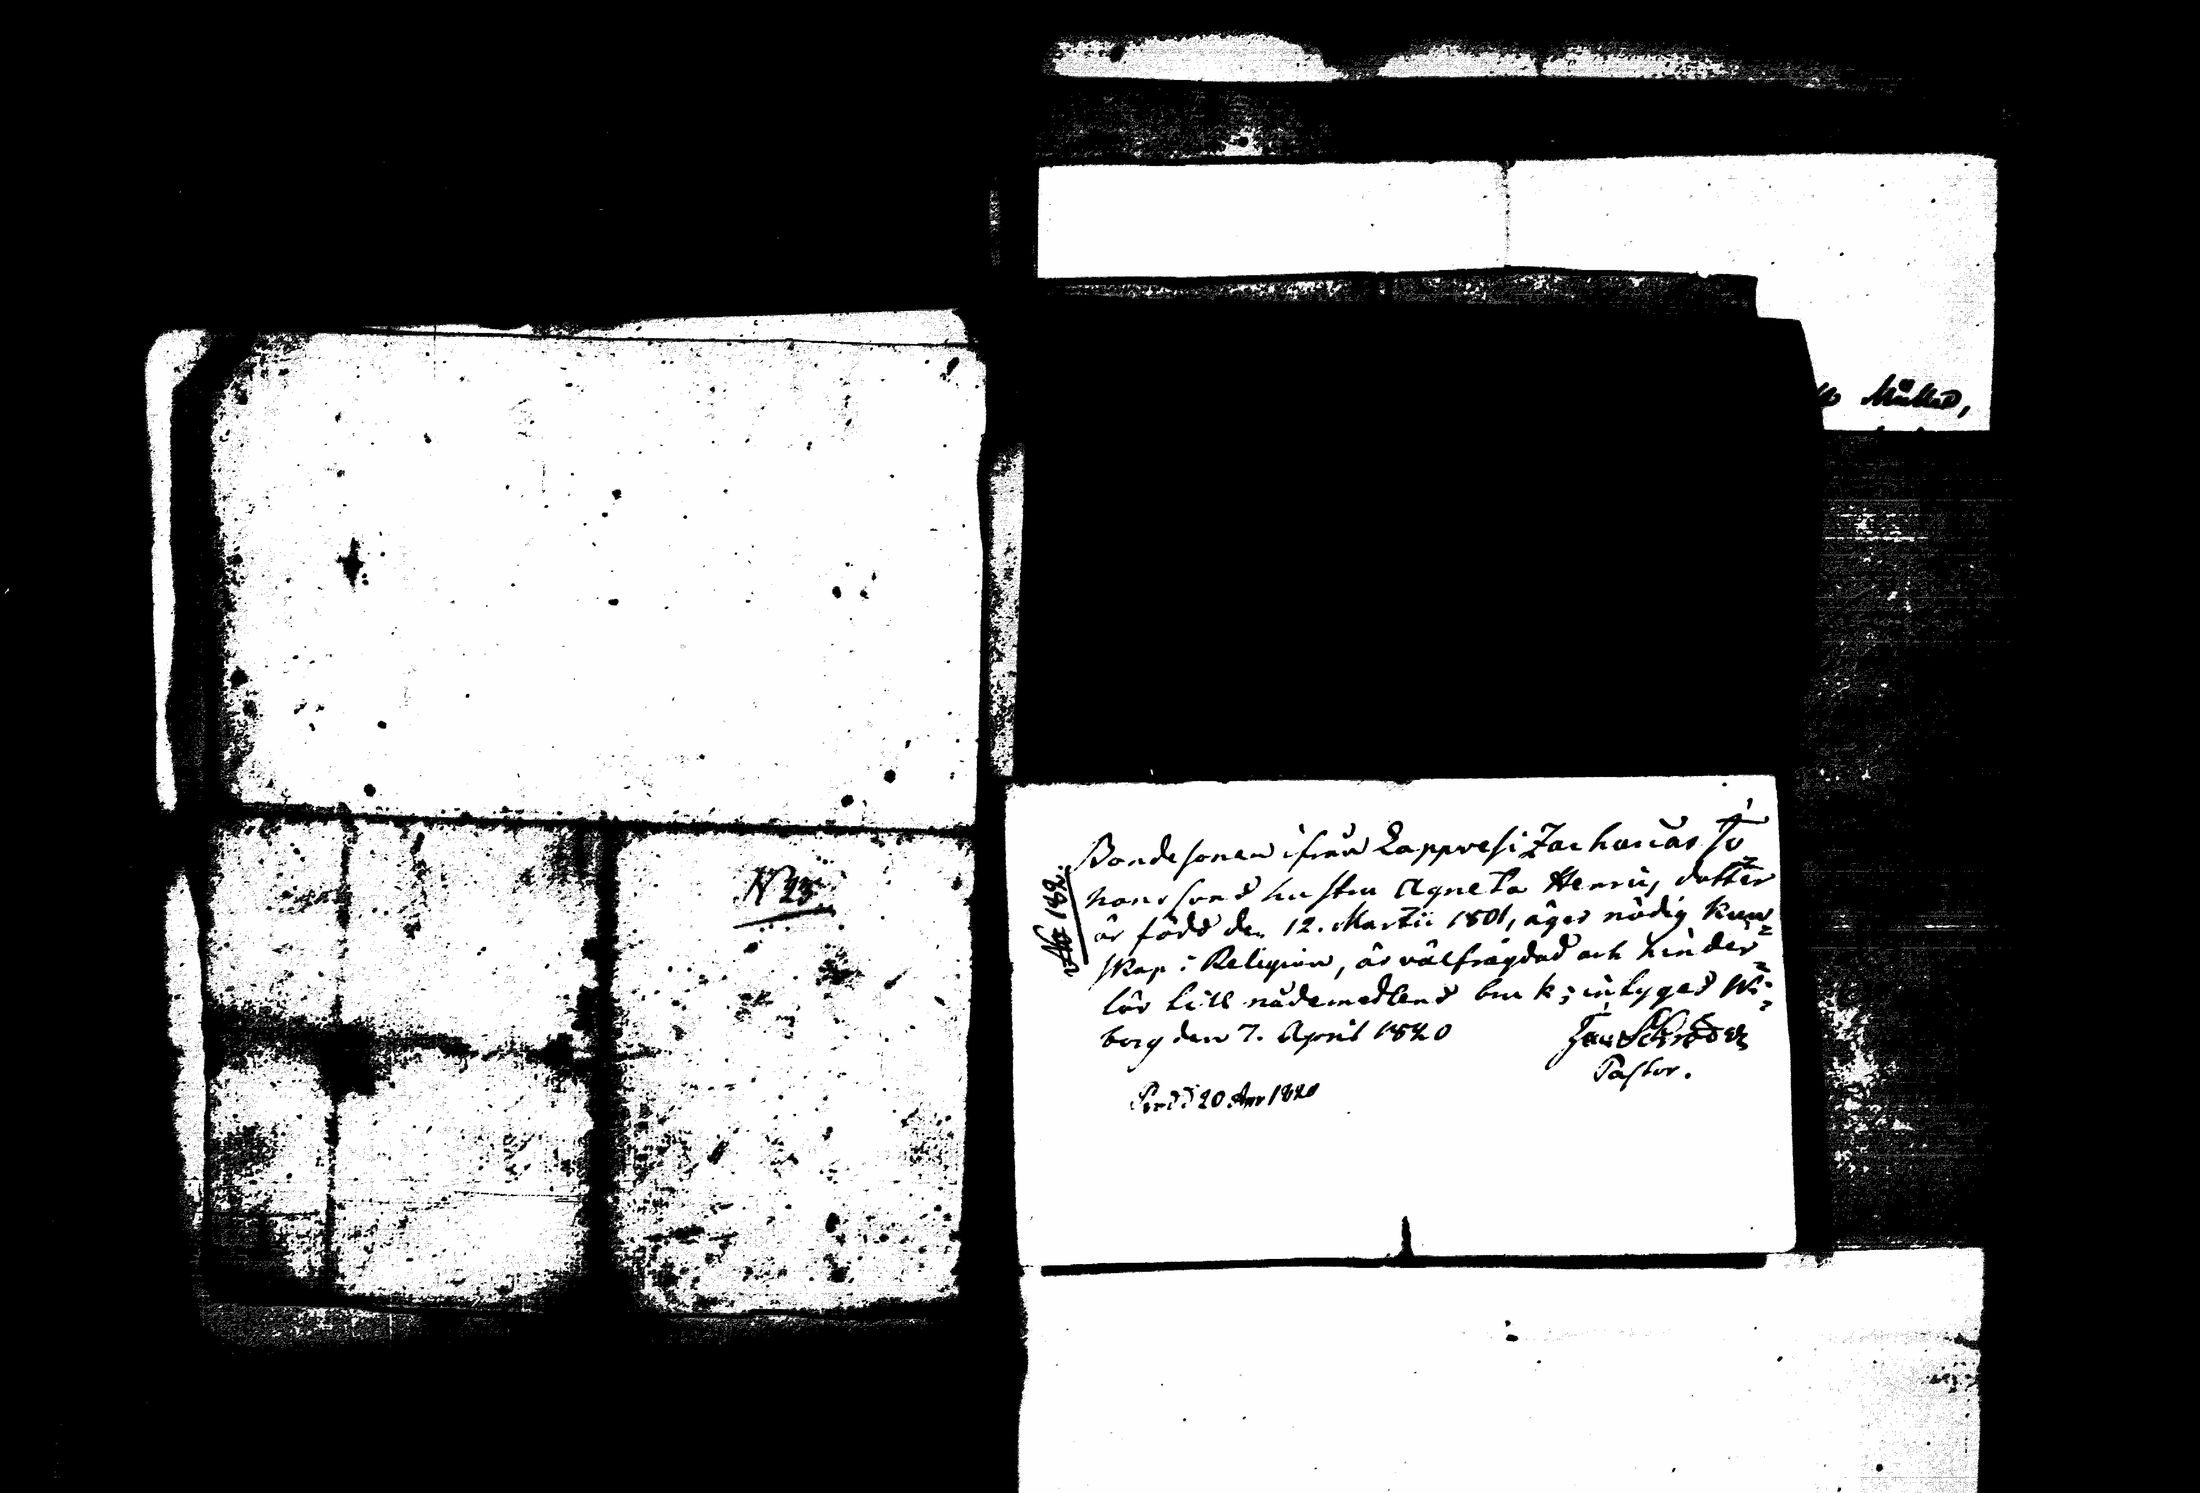 N 23
Müller,
No 182.
Bondesonen ifrån Lappvesi Zacharias Jo=
hanssons hustru Agneta Henrics dotter
är född den 12. Martii 1801, äger nödig kun=
skap i Religion, är välfrägdad och hinder=
lös till nådemedlens bruk; intygas Wi=
borg den 7. April 1820
Schröder
Pastor.
20 Apr 1820